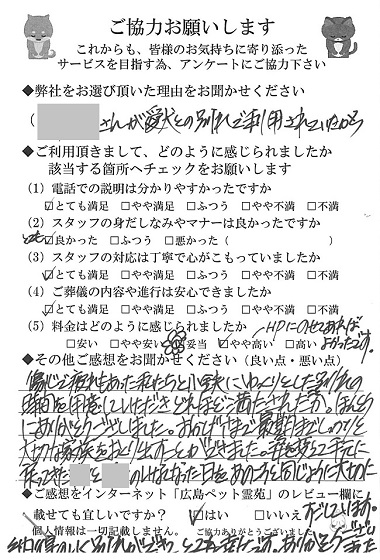 ご協力お願いします
これからも、皆様のお気持ちに寄り添った
サービスを目指す為、アンケートにご協力下さい
◆弊社をお選び頂いた理由をお聞かせください
( さんが愛犬との別れでご利用されていたから
◆ご利用頂きまして、どのように感じられましたか
該当する箇所へチェックをお願いします
(1) 電話での説明は分かりやすかったですか
☑とても満足 □やや満足 □ふつう □やや不満 □不満
(2) スタッフの身だしなみやマナーは良かったですか
とても ☑良かった □ふつう □悪かった (     )
(3) スタッフの対応は丁寧で心がこもっていましたか
☑とても満足 □やや満足 □ふつう □やや不満 □不満
(4) ご葬儀の内容や進行は安心できましたか
☑とても満足 □やや満足 □ふつう □やや不満 □不満
(5) 料金はどのように感じられましたか HPにのせてあれば
□安い □やや安い 妥当 ☑やや高い □高い よかったです。
◆その他ご感想をお聞かせください (良い点・悪い点)
時間を用意していただき どれほど満たされたか。ほんとう
にありがとうございました。おかげさまで最期まで
大切な家族を
と のいけなかった日をあの子と同じように大切に
◆ご感想をインターネット「広島ペット霊苑」のレビュー欄に
載せても宜しいですか? ☑はい □いいえ
個人情報は一切記載しません。 ご協力ありがとうございました